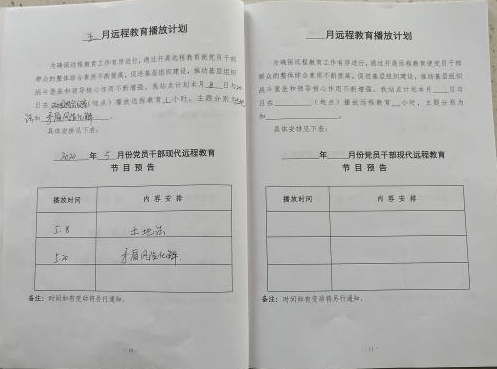 五月远程教育播放计划
为确保远程教育工作有序进行，通过开展远程教育使党员干部
群众的整体综合素质不断提高，促进基层组织建设，推动基层组织
战斗堡垒和领导核心作用不断增强。我站点计划本月8日与20
日在（地点）播放远程教育1小时，主题分别为土地
法和矛盾风险化解。
具体安排见下表：
2020年5月份党员干部现代远程教育
节目预告
播放时间 内容安排
5.8 土地法
5.20 矛盾风险化解
备注：时间如有变动将另行通知。
月远程教育播放计划
为确保远程教育工作有序进行，通过开展远程教育使党员干部
群众的整体综合素质不断提高，促进基层组织建设，推动基层组织
战斗堡垒和领导核心作用不断增强。我站点计划本月日与
日在（地点）播放远程教育小时，主题分别为
和。
具体安排见下表：
年月份党员干部现代远程教育
节目预告
播放时间 内容安排
备注：时间如有变动将另行通知。